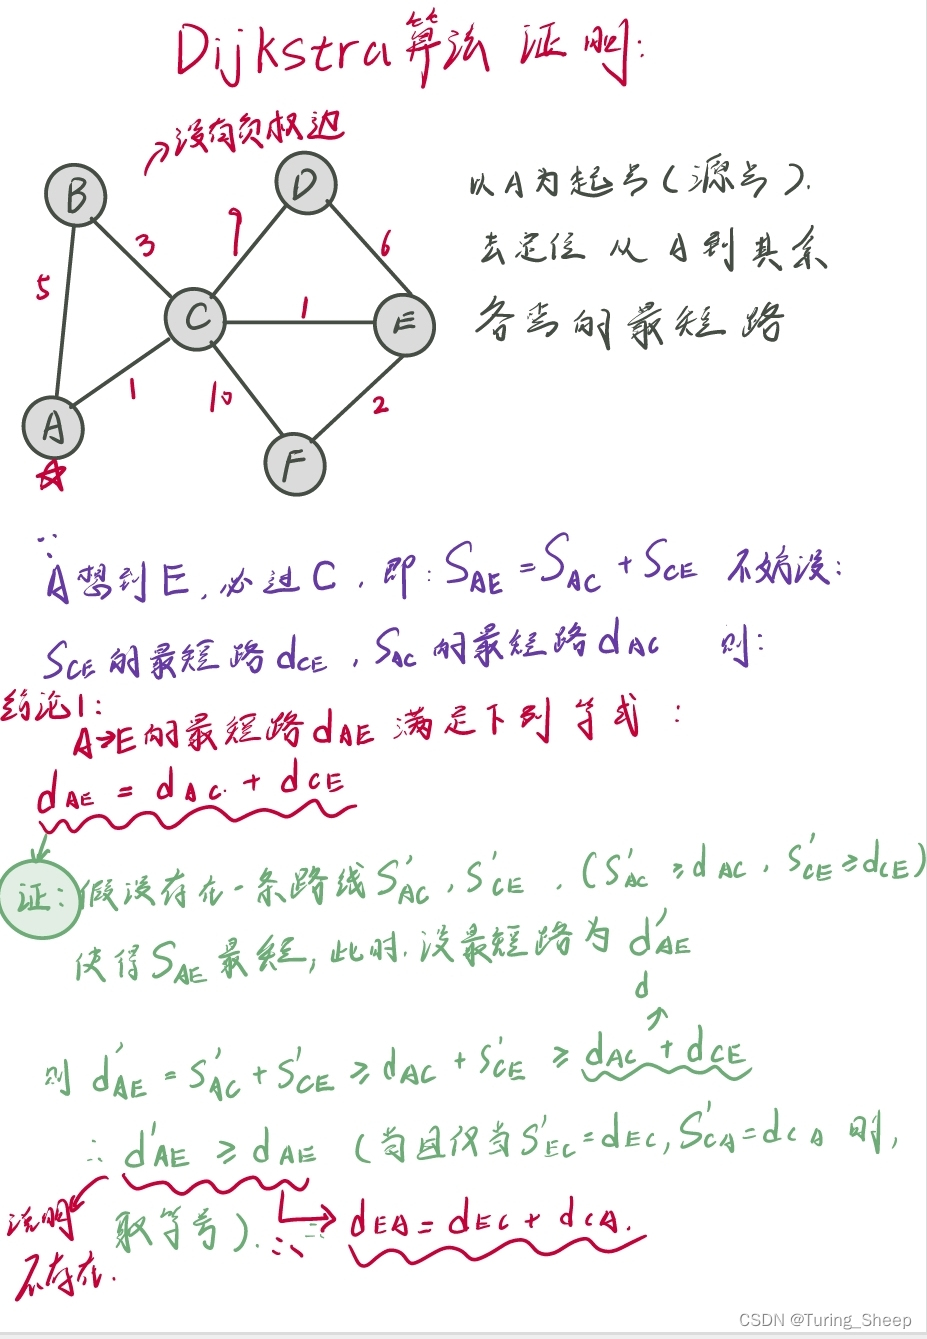 Dijkstra算法 证明:
没有负权边
B
D
以A为起点(源点).
3
9
6
去定位 从 A到其余
5
C
1
E
各点的最短路
1
10
2
A
F
∵
A想到E,必过C,即:S_AE = S_AC + S_CE 不妨设:
S_CE的最短路d_CE,S_AC的最短路d_AC 则:
结论1:
A→E的最短路d_AE 满足下列等式:
d_AE = d_AC + d_CE
证:假设存在一条路线S'_AC,S'_CE.(S'_AC ≥ d_AC,S'_CE ≥ d_CE)
使得S_AE最短,此时.设最短路为 d'_AE
d
则 d'_AE = S'_AC + S'_CE ≥ d_AC + S'_CE ≥ d_AC + d_CE
∴ d'_AE ≥ d_AE (当且仅当S'_EC = d_EC, S'_CA = d_CA 时,
说明
取等号).
∴ d_EA = d_EC + d_CA.
不存在.
CSDN @Turing_Sheep